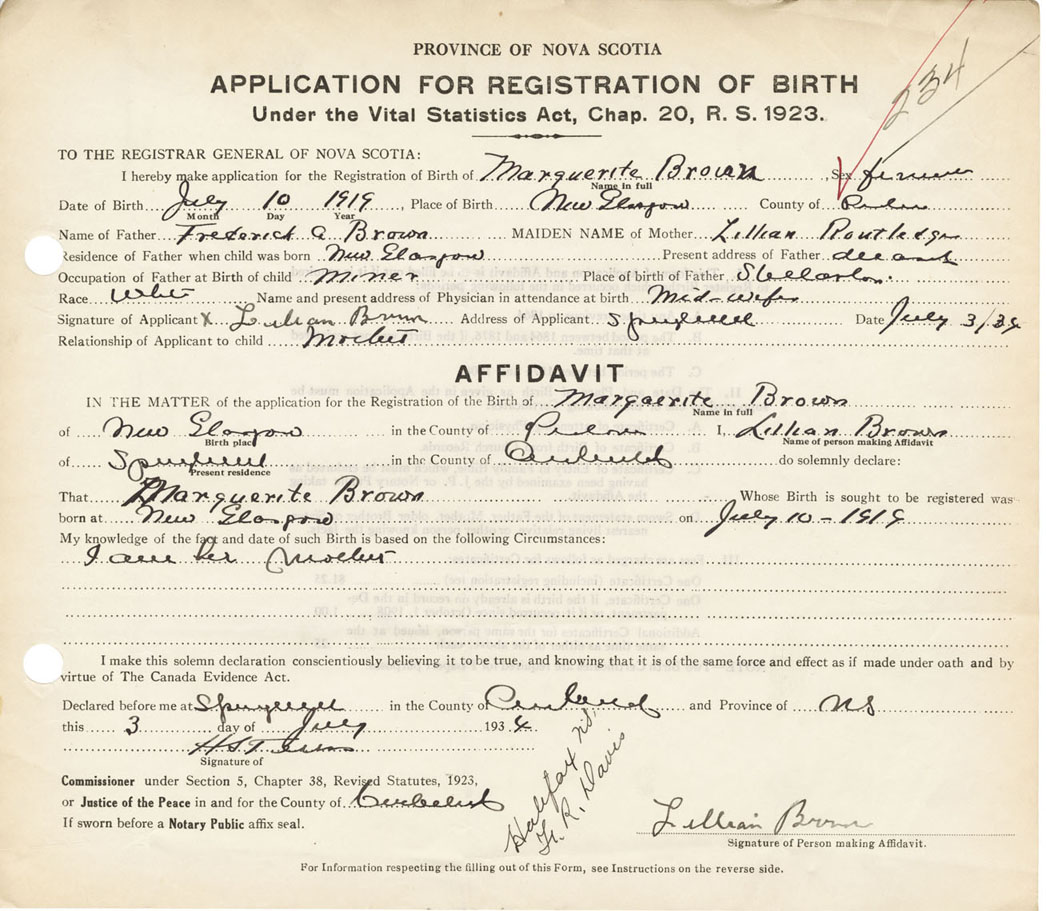 234
PROVINCE OF NOVA SCOTIA
APPLICATION FOR REGISTRATION OF BIRTH
Under the Vital Statistics Act, Chap. 20, R. S. 1923.
TO THE REGISTRAR GENERAL OF NOVA SCOTIA:
I hereby make application for the Registration of Birth of Marguerite Brown, Sex female
Name in full
Date of Birth July 10 1919, Place of Birth New Glasgow County of Pictou
Month Day Year
Name of Father Frederick A Brown MAIDEN NAME of Mother Lillian Routledge
Residence of Father when child was born New Glasgow Present address of Father deceased
Occupation of Father at Birth of child Miner Place of birth of Father Stellarton
Race White Name and present address of Physician in attendance at birth Mid-wife
Signature of Applicant X Lillian Brown Address of Applicant Springhill Date July 3/34
Relationship of Applicant to child Mother
AFFIDAVIT
IN THE MATTER of the application for the Registration of the Birth of Marguerite Brown
Name in full
of New Glasgow in the County of Pictou I, Lillian Brown
Birth place Name of person making Affidavit
of Springhill in the County of Cumberland do solemnly declare:
Present residence
That Marguerite Brown Whose Birth is sought to be registered was
born at New Glasgow on July 10 - 1919
My knowledge of the fact and date of such Birth is based on the following Circumstances:
I am her Mother
I make this solemn declaration conscientiously believing it to be true, and knowing that it is of the same force and effect as if made under oath and by
virtue of The Canada Evidence Act.
Declared before me at Springhill in the County of Cumberland and Province of NS
this 3 day of July 1934.
Signature of
Commissioner under Section 5, Chapter 38, Revised Statutes, 1923,
or Justice of the Peace in and for the County of Cumberland
If sworn before a Notary Public affix seal.
Halifax NS.
F. R. Davis
Lillian Brown
Signature of Person making Affidavit.
For Information respecting the filling out of this Form, see Instructions on the reverse side.